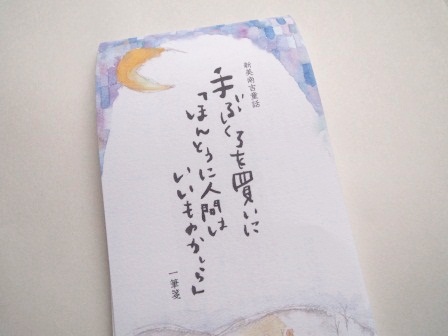 新美南吉童話
手ぶくろを買いに
「ほんとうに人間は
いいものかしら」
一筆箋